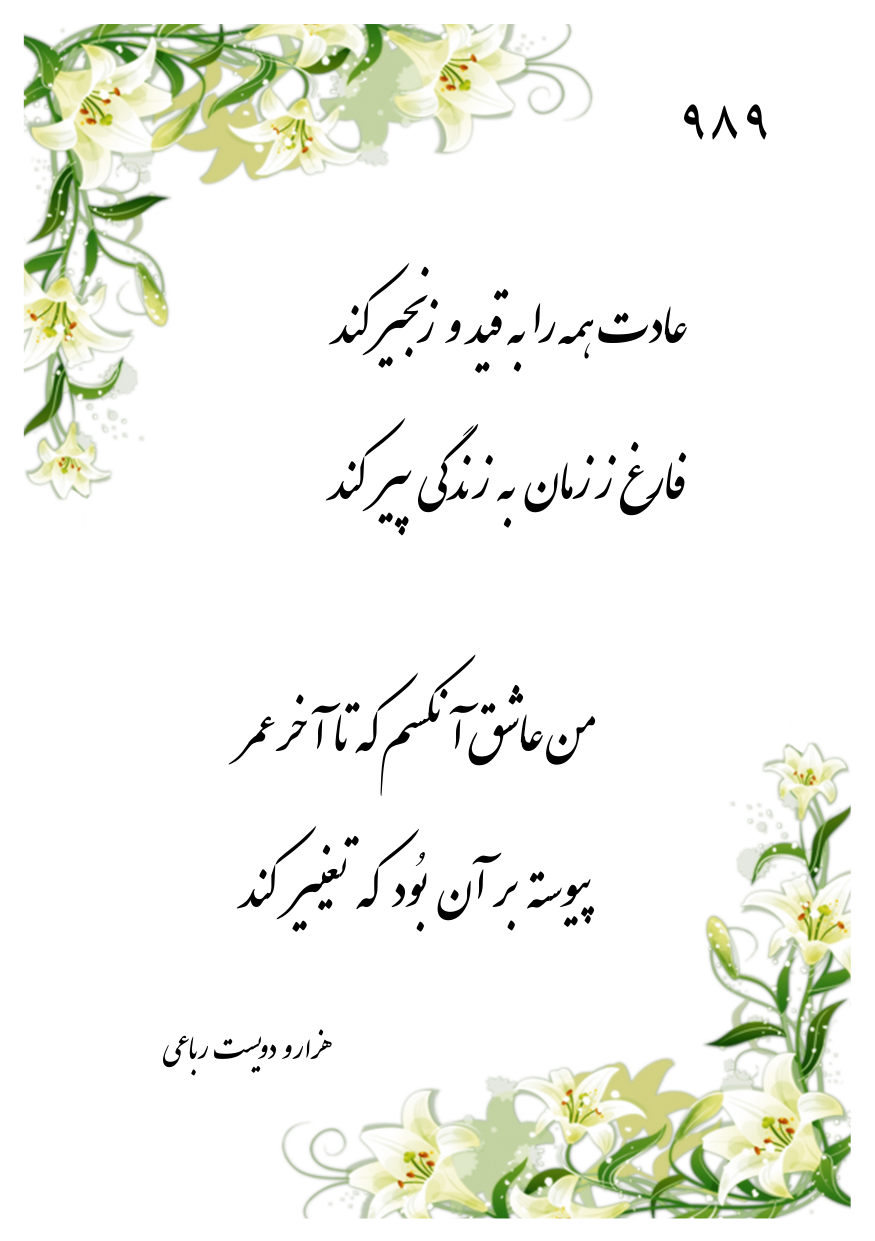 ۹۸۹
عادت همه را به قید و زنجیر کند
فارغ ز زمان به زندگی پیر کند
من عاشق آنکسم که تا آخر عمر
پیوسته بر آن بُود که تغییر کند
هزار و دویست رباعی